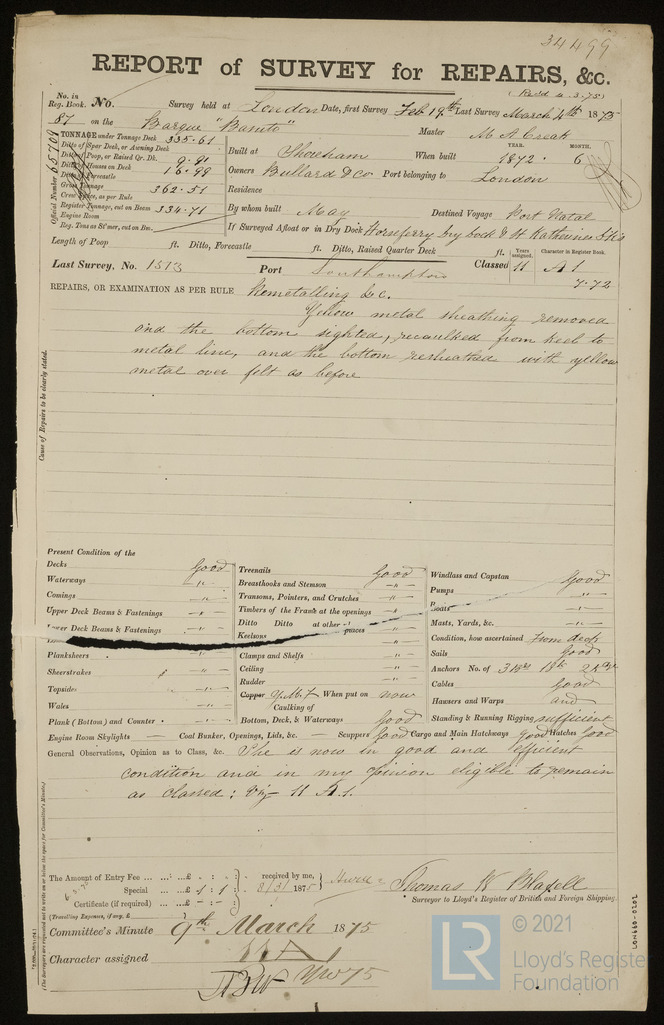 34499
REPORT of SURVEY for REPAIRS, &c.
(Rec'd 4.3.75)
No. in Reg. Book. No. Survey held at London Date, first Survey Feb 19th Last Survey March 4th 1875
87 on the Barque "Barnto" Master
TONNAGE under Tonnage Deck 335.61
Ditto of Spar Deck, or Awning Deck
Ditto Poop, or Raised Qr. Dk. 9.91
Ditto Houses on Deck 16.99
Ditto Forecastle
Gross Tonnage 362.51
Crew Space, as per Rule
Register Tonnage, cut on Beam 334.71
Engine Room
Reg. Tons as St'mer, cut on Bm.
Official Number 65709
Built at Shoreham When built YEAR. 1872. MONTH. 6
Owners Bullard & Co Port belonging to London
Residence
By whom built May Destined Voyage Port Natal
If Surveyed Afloat or in Dry Dock Horseferry Dry Dock & St Katherines
Length of Poop ft. Ditto, Forecastle ft. Ditto, Raised Quarter Deck ft.
Last Survey, No. 1513 Port Southampton Classed Years assigned. 11 Character in Register Book. A 1
7.72
REPAIRS, OR EXAMINATION AS PER RULE Remetalling &c.
Yellow metal sheathing removed
and the bottom sighted, recaulked from keel to
metal line, and the bottom resheathed with yellow
metal over felt as before
Cause of Repairs to be clearly stated.
Present Condition of the
Decks Good
Waterways -"-
Comings -"-
Upper Deck Beams & Fastenings -"-
Lower Deck Beams & Fastenings -"-
Planksheers -"-
Sheerstrakes -"-
Topsides -"-
Wales -"-
Plank (Bottom) and Counter -"-
Engine Room Skylights — Coal Bunker, Openings, Lids, &c. — Scuppers Good Cargo and Main Hatchways good Hatches Good
Treenails Good
Breasthooks and Stemson -"-
Transoms, Pointers, and Crutches -"-
Timbers of the Frame at the openings -"-
Ditto Ditto at other places -"-
Keelsons -"-
Clamps and Shelfs -"-
Ceiling -"-
Rudder -"-
Copper Y.M.F When put on now
Caulking of
Bottom, Deck, & Waterways Good
Windlass and Capstan Good
Pumps -"-
Boats -"-
Masts, Yards, &c. -"-
Condition, how ascertained from deck
Sails Good
Anchors No. of 3
Cables Good
Hawsers and Warps and
Standing & Running Rigging sufficient
General Observations, Opinion as to Class, &c. She is now in good and efficient
condition and in my opinion eligible to remain
as classed: viz 11 A.1.
The Amount of Entry Fee ... ... £ - : - : received by me,
Special ... £ 1 : 1 : 8/3/1875
Certificate (if required) ... £ - : - :
(Travelling Expenses, if any, £
Surveyor to Lloyd's Register of British and Foreign Shipping.
Committee's Minute 9th March 1875
Character assigned 11 A 1
YM 75
LON660-0202
© 2021
LR
Lloyd's Register
Foundation